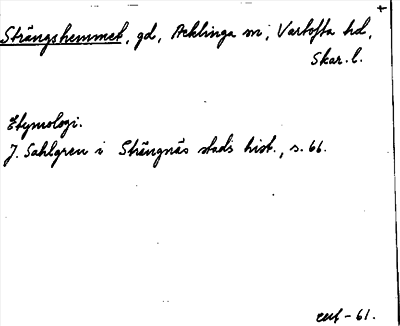 +
Strängshemmet, gd, Acklinga sn, Vartofta hd,
Skar. l.
Etymologi.
J. Sahlgren i Strängnäs stads hist., s. 66.
-61.